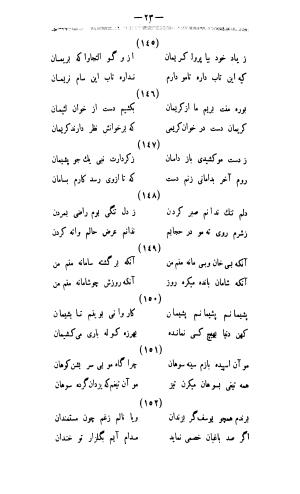 — ۲۳ —
(۱۴۵)
ز یاد خود بیا پروا کریمان از و گو التجاوا که بریمان
که این تاب داره تامو دارم نداره تاب این سام نریمان
(۱۴۶)
بوره منت بریم ما از کریمان بکشیم دست از خوان لئیمان
کریمان دست در خوان کریمی که برخوانش نظر دارند کریمان
(۱۴۷)
ز دست مو کشیدی باز دامان ز کردارت نبی یک جو پشیمان
روم آخر بدامانی زنم دست که تا از وی رسد کارم بسامان
(۱۴۸)
دلم تنگ ندانم صبر کردن ز دل تنگی بوم راضی بمردن
ز شرم روی ته مو در حجابم ندانم عرض حالم وا ته کردن
(۱۴۹)
آنکه بی خان وبی مانه منم من آنکه برگشته سامانه منم من
آنکه شامان بانده میکره روز آنکه روزش چو شامانه منم من
(۱۵۰)
پشیمانم پشیمانم پشیمان کاروانی بوینم تا بشیمان
کهن دنیا بهیچ کسی نمانده بهرزه کوله باری میکشیمان
(۱۵۱)
مو آن اسپیده بازم سینه سوهان چراگاه مو بی سر بشن کوهان
همه تیغی بسوهان میکرن تیز مو آن تیغم که یزدان کرده سوهان
(۱۵۲)
برندم همچو یوسف گر بزندان ویا نالم زغم چون مستمندان
اگر صد باغبان خصمی نماید مدام آیم بگلزار تو خندان